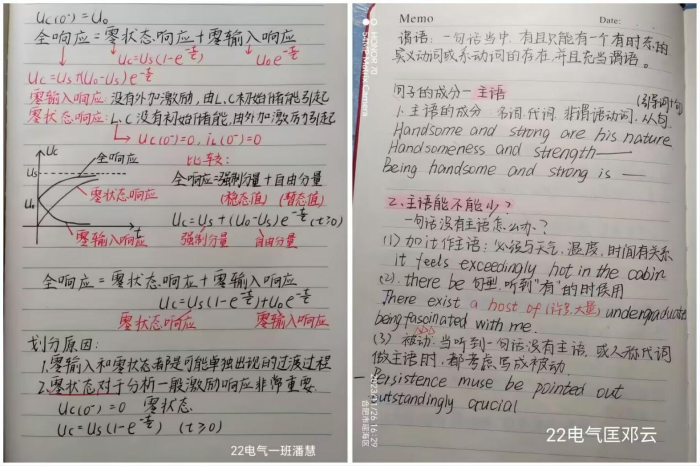 Uc(0⁻)=U₀
全响应=零状态响应+零输入响应
Uc=Us(1-e^-t/τ) U₀e^-t/τ
Uc=Us+(U₀-Us)e^-t/τ
零输入响应:没有外加激励,由L.C初始储能引起
零状态响应:L.C没有初始储能,由外加激励引起
Uc(0⁻)=0, iL(0⁻)=0
Uc
全响应
Us
零状态响应
U₀
零输入响应
t
比较:
全响应=强制分量+自由分量
(稳态值) (暂态值)
Uc=Us+(U₀-Us)e^-t/τ (t≥0)
强制分量 自由分量
全响应=零状态响应+零输入响应
Uc=Us(1-e^-t/τ)+U₀e^-t/τ
零状态响应 零输入响应
划分原因:
1.零输入和零状态都是可能单独出现的过渡过程
2.零状态对于分析一般激励响应非常重要
Uc(0⁻)=0 零状态
Uc=Us(1-e^-t/τ) (t≥0)
22电气一班潘慧
Memo Date:
谓语:一句话当中,有且只能有一个有时态的
实义动词或系动词的存在,并且充当谓语。
句子的成分—主语
1.主语的成分:名词.代词.非谓语动词.从句
Handsome and strong are his nature
Handsomeness and strength——
Being handsome and strong is —
2.主语能不能少?
一句话没有主语怎么办?
(1)加it作主语:必须与天气,温度,时间有关系
it feels exceedingly hot in the cabin
(2).there be 句型,听到"有"的时候用
There exist a host of (许多.大量) undergraduate
being fascinated with me.
(3) 被动:当听到一句话没有主语,或人称代词
做主语时,都考虑写成被动.
Persistence muse be pointed out
outstandingly crucial
HONOR 70
54MP Matrix Camera
2023/11/26 16:29
合肥市瑶海区
22电气匡邓云